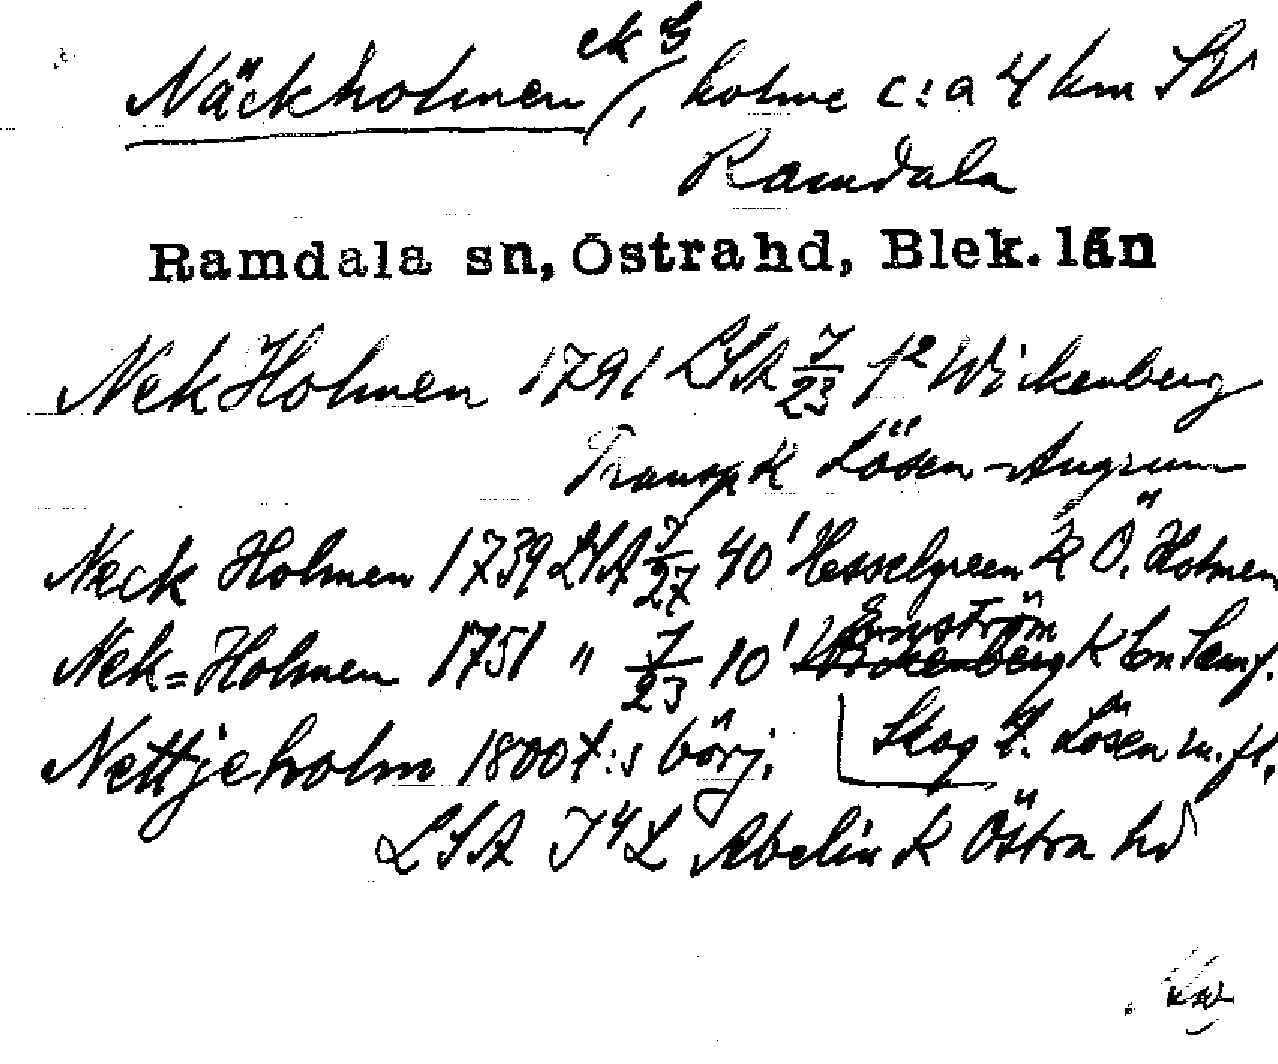 Näckholmen ek S/, holme c:a 4 km SV
Ramdala
Ramdala sn, Östra hd, Blek. län
Nek Holmen 1791 LSA 7/23 f² Wickenberg
Transp K Lösen - Augerum
Neck Holmen 1739 LSA 7/27 40' Hesselgreen K Ö. Holmen
Nek=Holmen 1751 " 7/23 10' Ernström K
Skog Lösen m. fl.
Nettjeholm 1800 t:s börj.
LSA Abelin K Östra hd